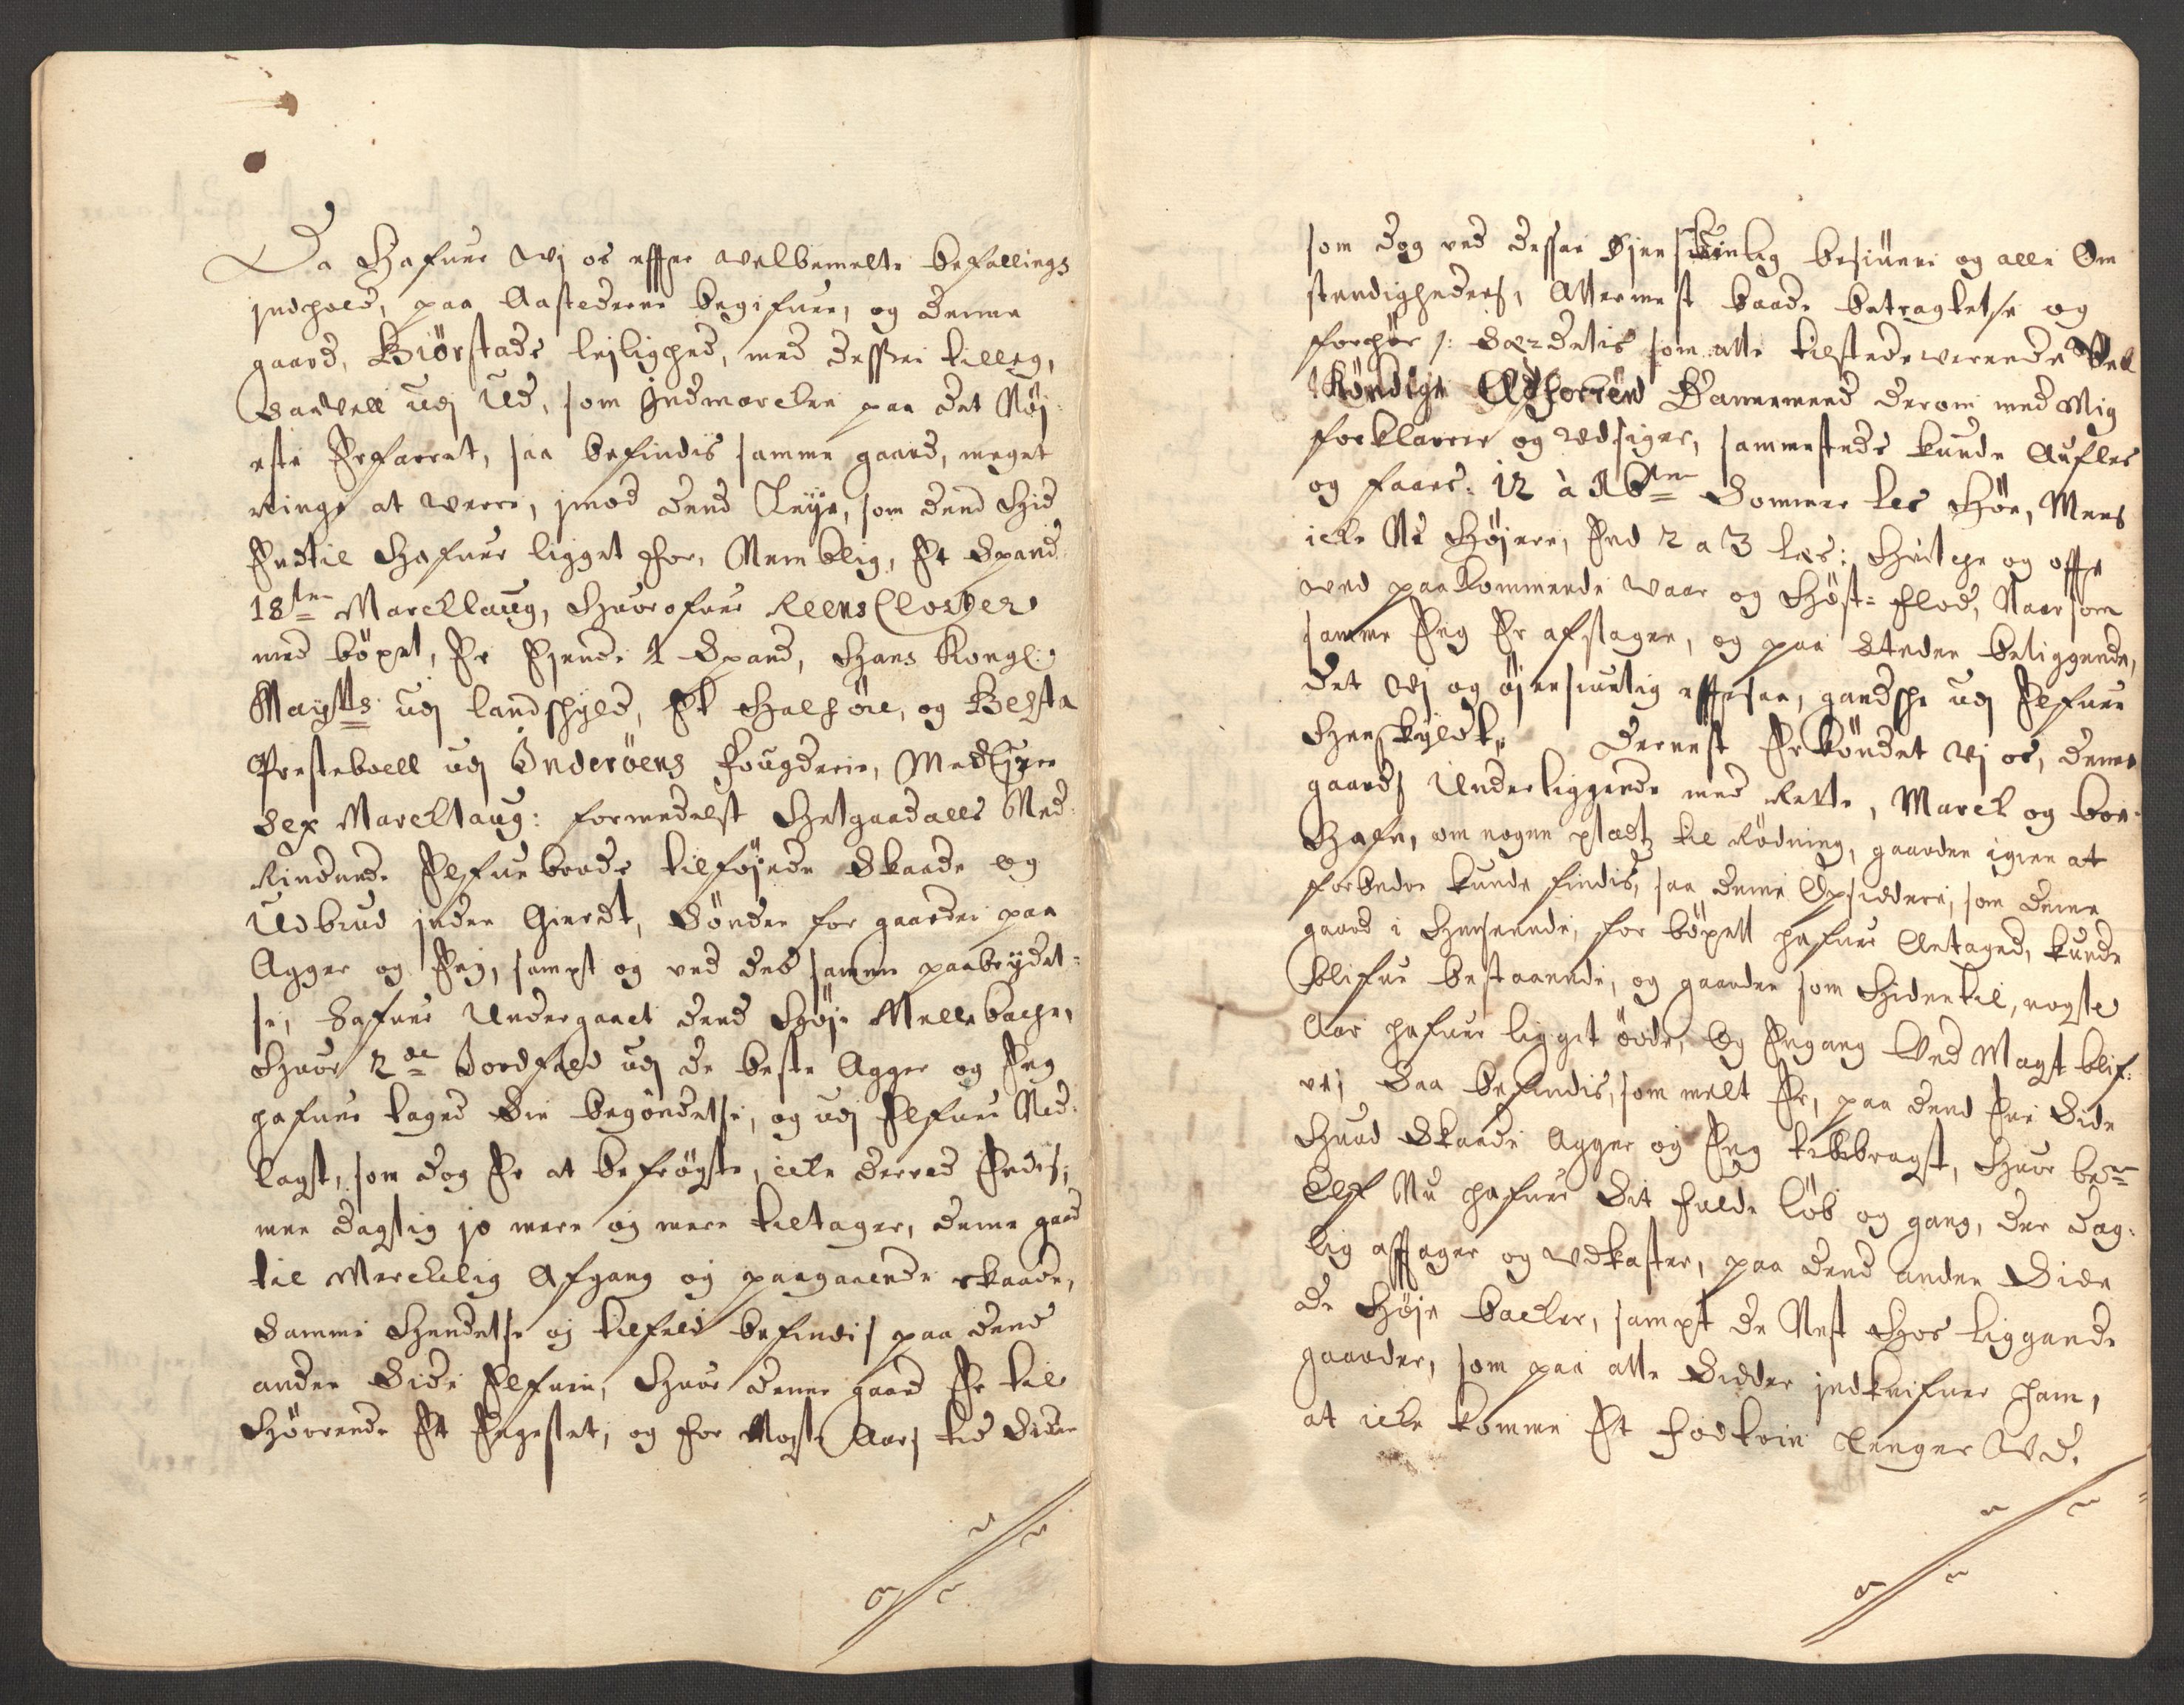 Da Hafuer wj os effter velbemelte befallings
indhold, paa Aastederne begifuen, og denne
gaard, Biörstads lejlighed, med dessen tilleg,
saavell udj Ud, som Indmarcken paa det Nøj-
este Erfarret, saa befindis samme gaard, meget
ringe at verre, imod dend Leye, som dend Hid
Indtil Hafuer ligget for, Nemblig, Et Spand
18ten Marcklaug, Huorofuer Reens Closter
med böxel, Er Ejende 1 Spand, Hans Kongl:
Maytts udj landschyld, Et Halföre, og Besta
Presteboell udj Inderöens Fougderie, Medejer
Sex Marcklaug: formedelst Helgaadalls Ned-
Rindende Elfue brods tilföjede Skaade og
Udbrud inden Gierdt, Sönder for gaarden paa
Agger og Eng, sampt og ved det samme paabrydel-
se, Hafuer Undergaaet dend Høje Mellebache,
Huor 2de Jordfald udj de beste Agger og Eng
hafuer taged Sin begøndelse, og udj Elfuen Ned-
lagt, som dog Er at befrögte, icke derved Endis,
men daglig jo mere og mere tiltager, denne gaard
til Merckelig Afgang og paagaaende skaade,
Samme Hendelse og tilfeld befindis paa dend
anden Side Elfuen, Huor denne gaard Er til
Hörende Et Engeslet, og for Nogle Aars tid Siden
som dog ved dessen Øjensiunlig besiunen og alle Om
stendigheders, Allermest baade betragtelse og
forhör /: Særdelis som alle tilstedeverende Vel
Köndige Danemend derom med Mig
forklarer og udsiger, sammesteds kunde Aufles
og faaes: 12 à 16ten Sommer les Höe, Mens
icke Nu Höjere, End 2 a 3 les: Huilche og offte
ved paakommende Vaar og Höst-flod, Naar som
samme Eng Er afslagen, og paa Steden beliggende,
det Wj og øjensiunlig effterfaar, gandsche udj Elfuen
Henskyldt. Dernest Erköndet wj os, denne
gaards Underliggende med Rette, Marck og bor-
Hafn, om nogen pladtz til Rödning, gaarden igien at
forbedre kunde findis, saa denne Opsiddere, som denne
gaard i Henseende, for böxell hafuer Antaged, kunde
blifue bestaaende, og gaarden som Hidentil, nogle
Aar hafuer ligget öde, Og Engang Ved Magt blif-
ve; Saa befindis, som melt Er, paa dend Ene Side
Huad Skaade Agger og Eng tilbragt, Huor bete
Elf Nu hafuer Sit fulde löb og gang, der dag-
lig afftager og udkaster, paa dend anden Side
de Höje backer, sampt de Nest Hos liggende
gaarder, som paa alle Sidder indknifuer ham,
at icke komme Et fodtrin lenger Ud.